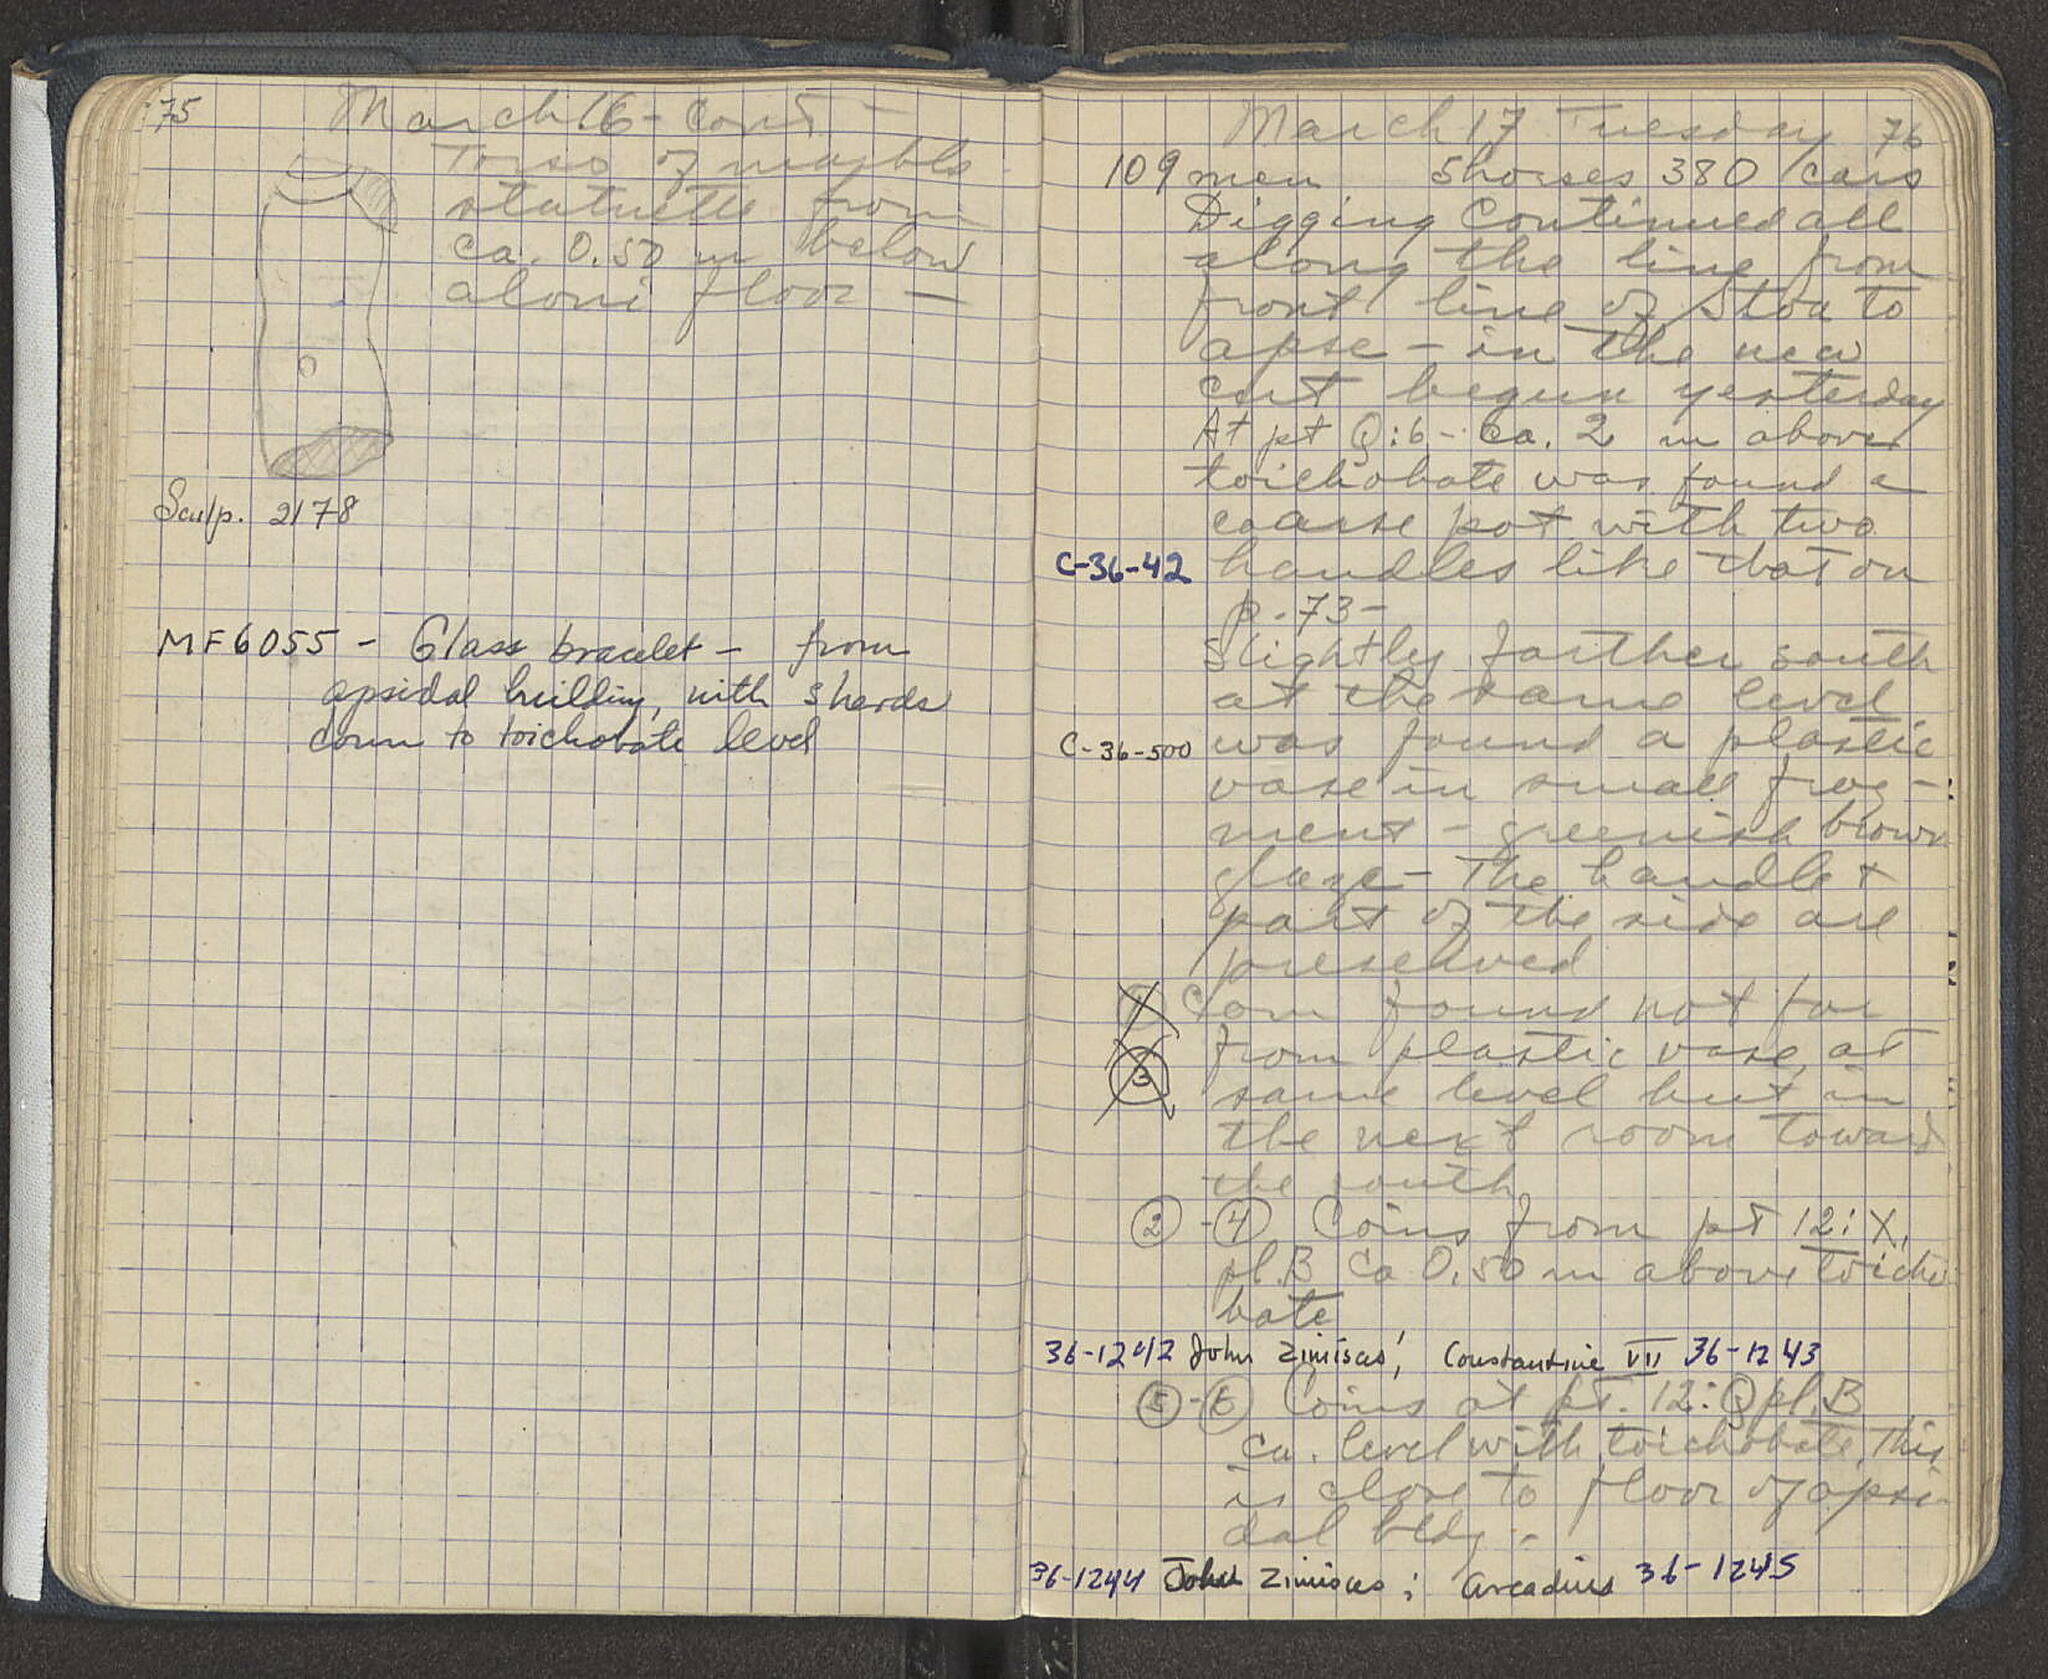 75
March 16 - Cont -
Torso of marble
statuette from
ca. 0.50 m below
aloni floor -
Sculp. 2178
MF6055 - Glass bracelet - from
apsidal building, with sherds
down to toichobate level
March 17 Tuesday 76
109 men 5 horses 380 cars
Digging continued all
along the line from
front line of Stoa to
apse - in the new
cut begun yesterday
At pt Q:6 - ca. 2 m above
toichobate was found a
coarse pot with two
C-36-42 handles like that on
p. 73 -
Slightly farther south
at the same level
C-36-500 was found a plastic
vase in small frag-
ment - greenish brown
glaze - The handle +
part of the side are
preserved
1 Coin found not far
3 from plastic vase, at
same level but in
the next room toward
the south
2 - 4 Coins from pt 12:X,
pl. B ca 0.50 m above toicho
bate
36-1242 John Zimisces; Constantine VII 36-1243
5 - 6 Coins at pt. 12:Q pl. B
ca. level with toichobate. This
is close to floor of apsi-
dal bldg -
36-1244 John Zimisces; Arcadius 36-1245